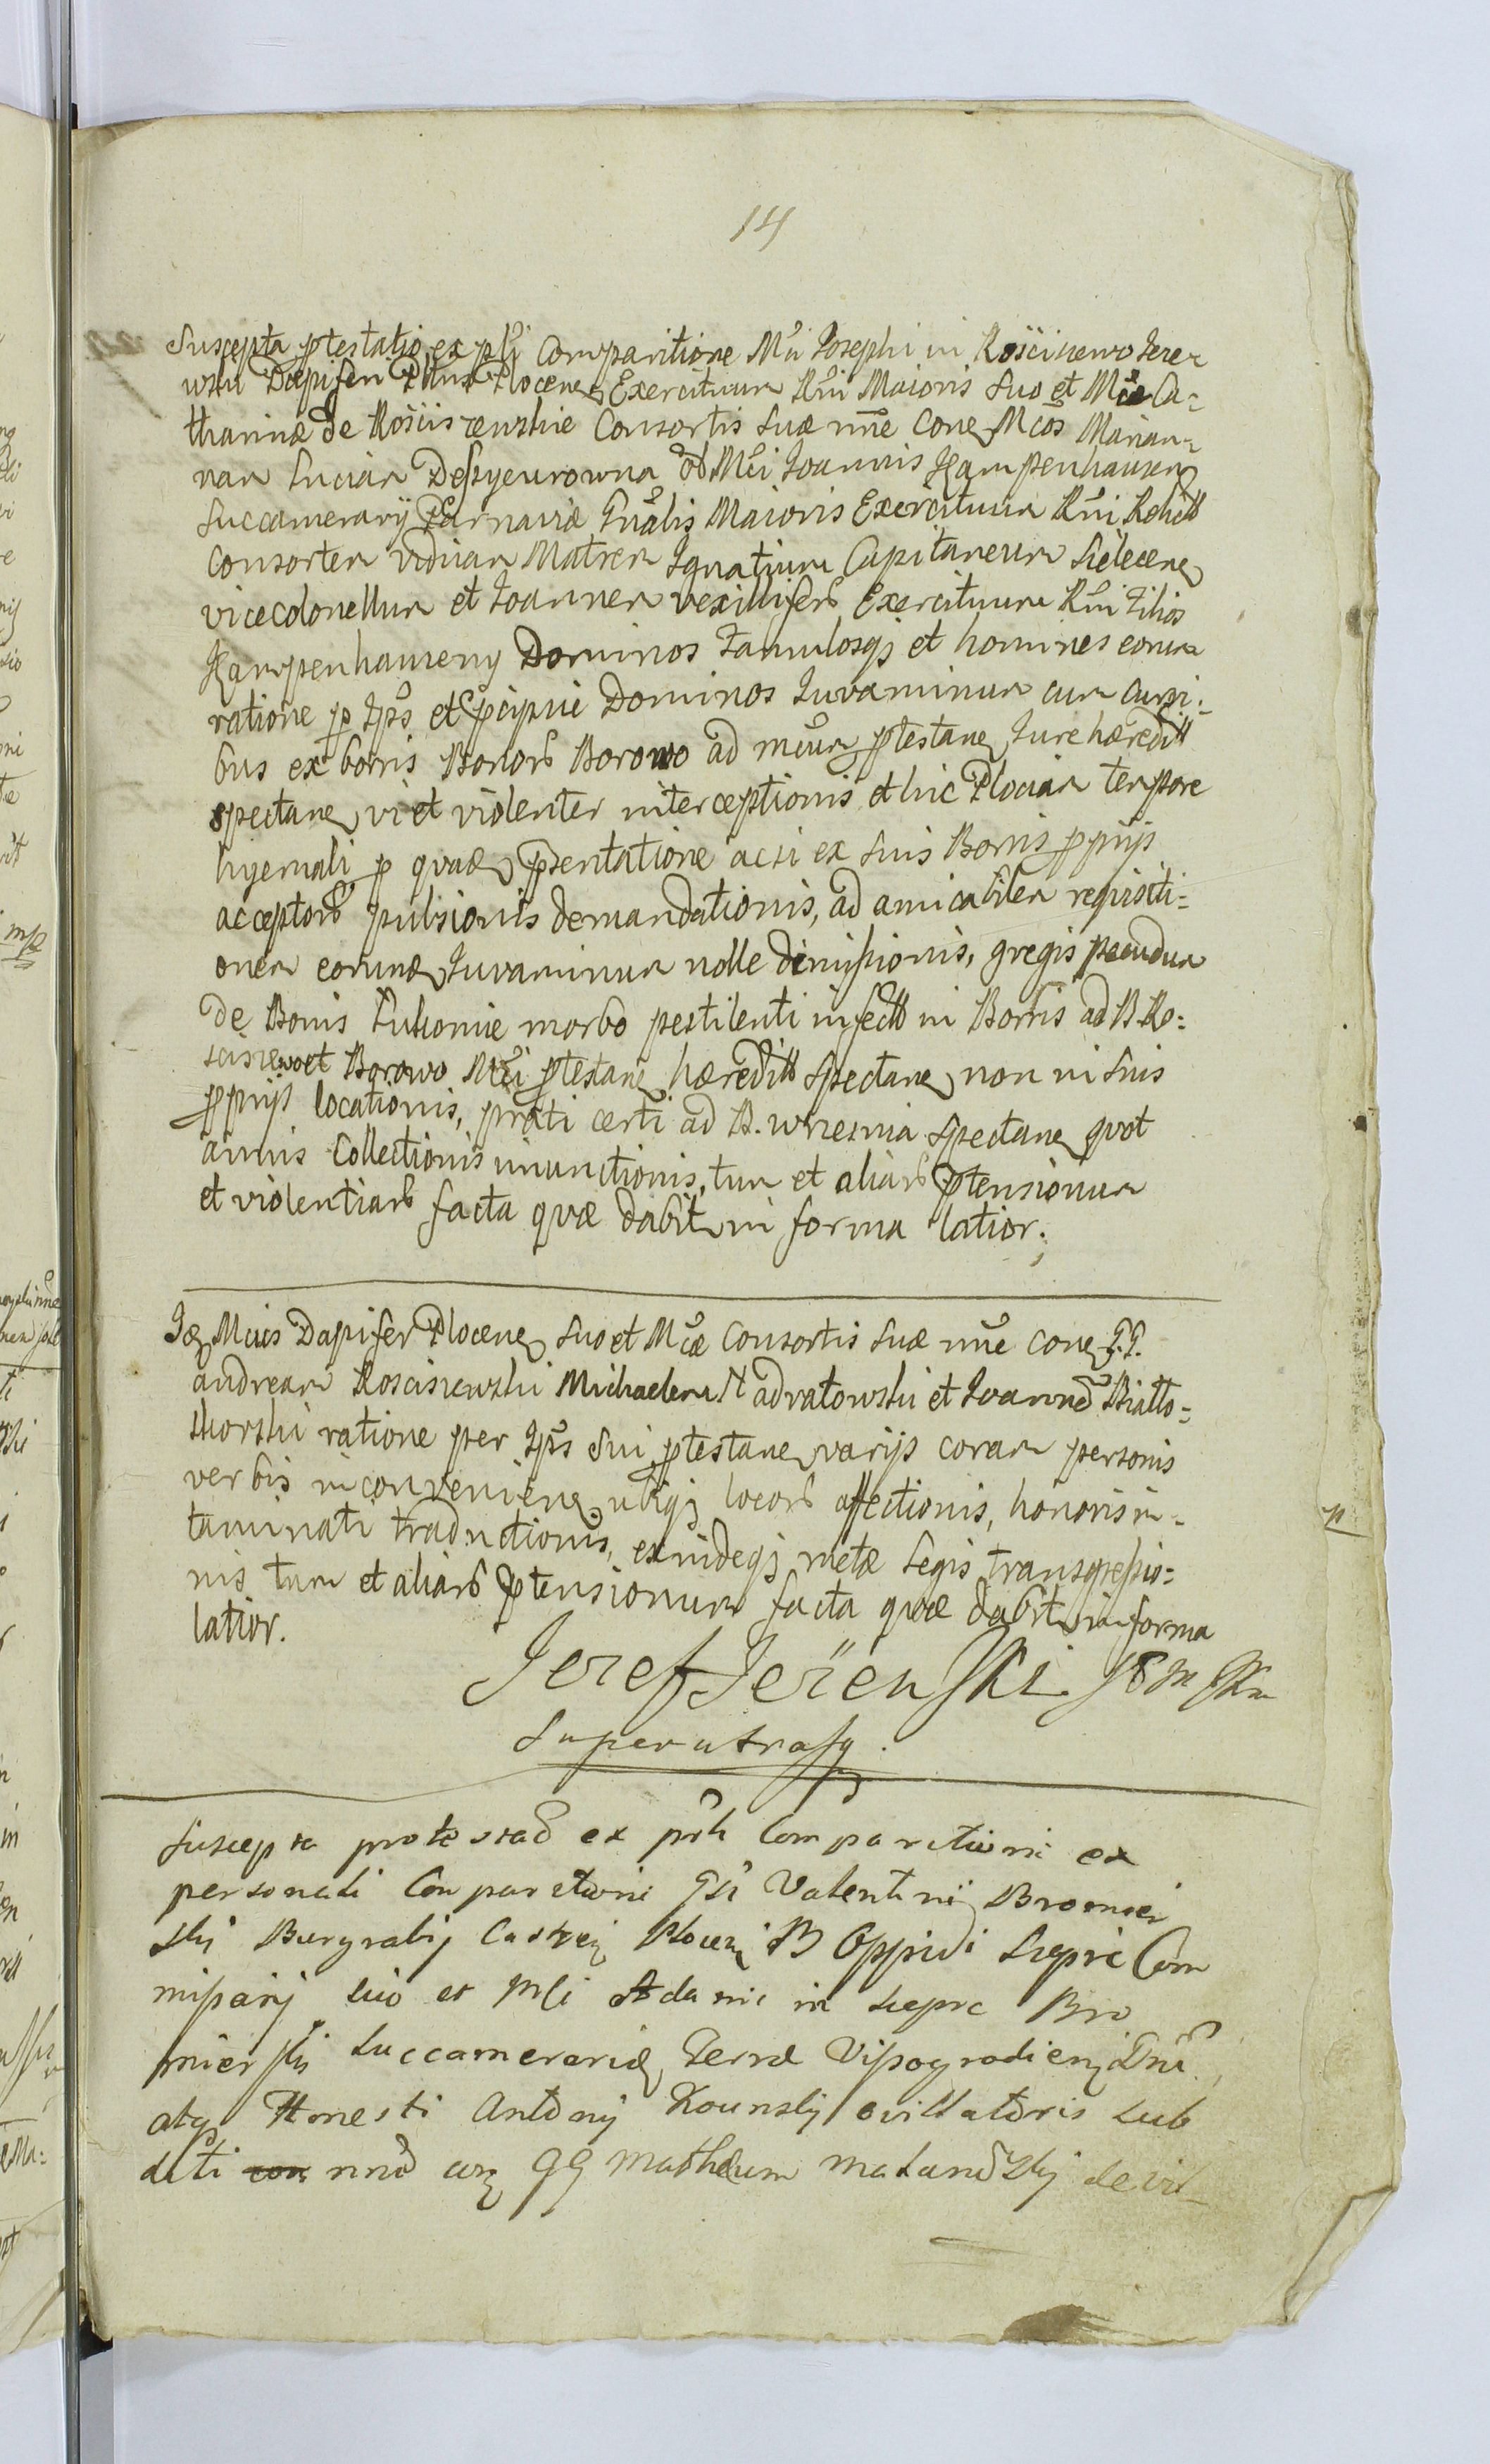 14
Suscepta ptestatio ex psli Comparitione Mci Josephi in Kościszewo Jezer
wski Dapiferi Pttnus Plocen Exercituum Rni Maioris suo et Mcæ Ca=
tharinæ de Kosciszewskie Consortis suæ nne cone Mcos Marian=
nan Lucian ob Mci Joannis Kampenhausen
succamerarij Parnaviæ Gnalis Maioris Exercituum Rni Relicta
consorten viduan Matren Ignatium Capitaneum Sielecene
vicecolonellum et Joannen vexilliferb Exercituum Rni Filios
Kampenhauzeny Dominos Famulosqz et homines eorum
ratione p Ips et pcipue Dominos Juvaminum cum curri=
bus ex borris Bonorb Borowo ad mcum ptestane Jure hæredit
spectane vi et violenter interceptionis et hic Plocian tempore
hyemali p quad psentatione acsi ex suis Borris pprijs
acceptorb pulsionis demandationis, ad amicabilem requisiti=
onem eorund Juvaminum nolle dimissionis, gregis pecudum
de Bonis morbo pestilenti infecti in Borris ad B. Ko=
sciszewo et Borowo Mci ptestane hæredit spectane non in suis
pprijs locationis, prati certi ad B. wrzesnia spectane quot
annis Collectionis inunctionis, tum et aliarb ptensionum
et violentiarb facta quæ dabit in forma latior.
Id Mcus Dapifer Plocene suo et Mcæ Consortis suæ nne cone G.G.
andream Kosciszewski Michaelem Nadratowski et Joannem Biallo=
skorski ratione per Ips sui ptestane varijs coram personis
verbis inconveniene ubiqz locorb affectionis, honoris in=
taminati traductionis, exindeqz metæ Legis transgressio=
nis tum et aliarb ptensionum facta quæ dabit in forma
latior.
Jozef Jezewski
Super utrasq.
Suscepta protestaõ ex psli Comparitioni ex
personali Comparitioni Gsi Valentini Bromier
skij Burgrabij Castren Plocen B Oppidi Sieprc Com
missarij suo et Mci Adami in Sieprc Bro
mierskij Succamerarid Terræ Vissogrodien Dni
atq Honesti Antonij Kounskij ovillatoris sub
diti nnõ con GG Mathæum de vil_